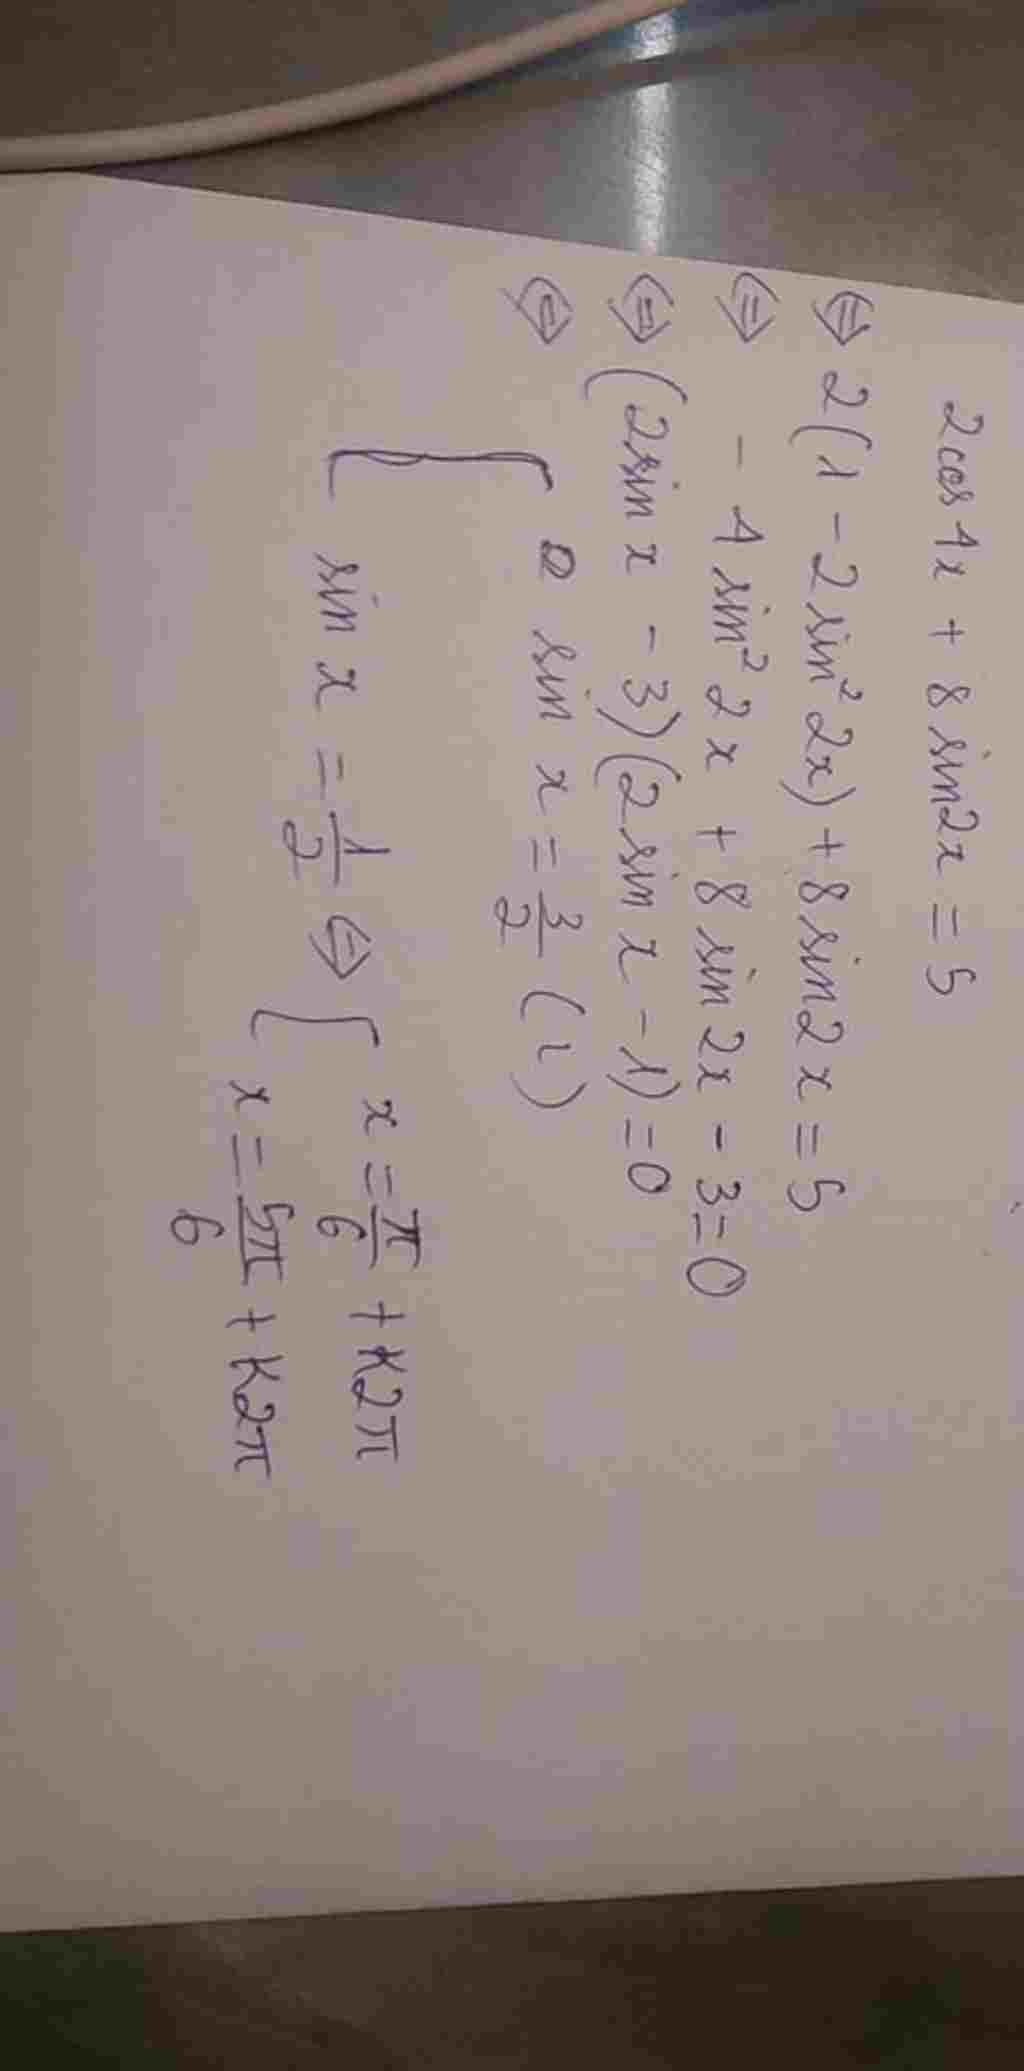 2cos 4x + 8 sin2x = 5
⇔ 2(1 - 2 sin² 2x) + 8 sin2x = 5
⇔ - 4 sin² 2x + 8 sin 2x - 3 = 0
⇔ (2sin x - 3)(2 sin x - 1) = 0
⇔ [ sin x = 3/2 (l)
sin x = 1/2 ⇔ [ x = π/6 + k2π
x = 5π/6 + k2π